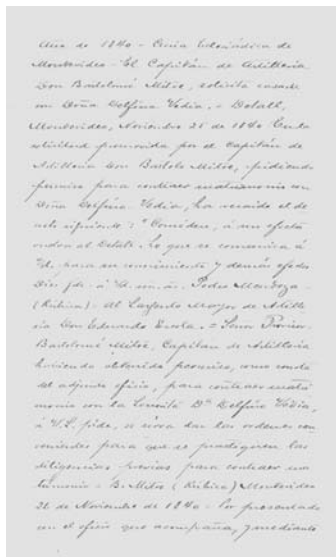 Año de 1840 - Curia Eclesiástica de
Montevideo - El Capitán de Artillería
Don Bartolomé Mitre, solicita casarse
con Doña Delfina Vedia, - Detall,
Montevideo, Noviembre 25 de 1840 En la
solicitud promovida por el Capitán de
Artillería Don Bartolo Mitre, pidiendo
permiso para contraer matrimonio con
Doña Delfina Vedia, ha recaido el de
creto siguiente: "Concédese, á su efecto
orden al Detall. Lo que se comunica á
Vd. para su conocimiento y demás efectos
Dios gde. á Vd. ms. as. Pedro Mendoza -
(Rúbrica) - Al Sargento Mayor de Artille
ria Don Eduardo Escola. = Señor Provisor
Bartolomé Mitre, Capitan de Artillería
haviendo obtenido permiso, como consta
del adjunto oficio, para contraer matri
monio con la Señorita Dª Delfina Vedia,
á V.S. pide, se sirva dar las ordenes con
venientes para que se practiquen las
diligencias previas para contraer ma
trimonio - B. Mitre (Rúbrica) Montevideo
26 de Noviembre de 1840 - Por presentado
con el oficio que acompaña, y mediante